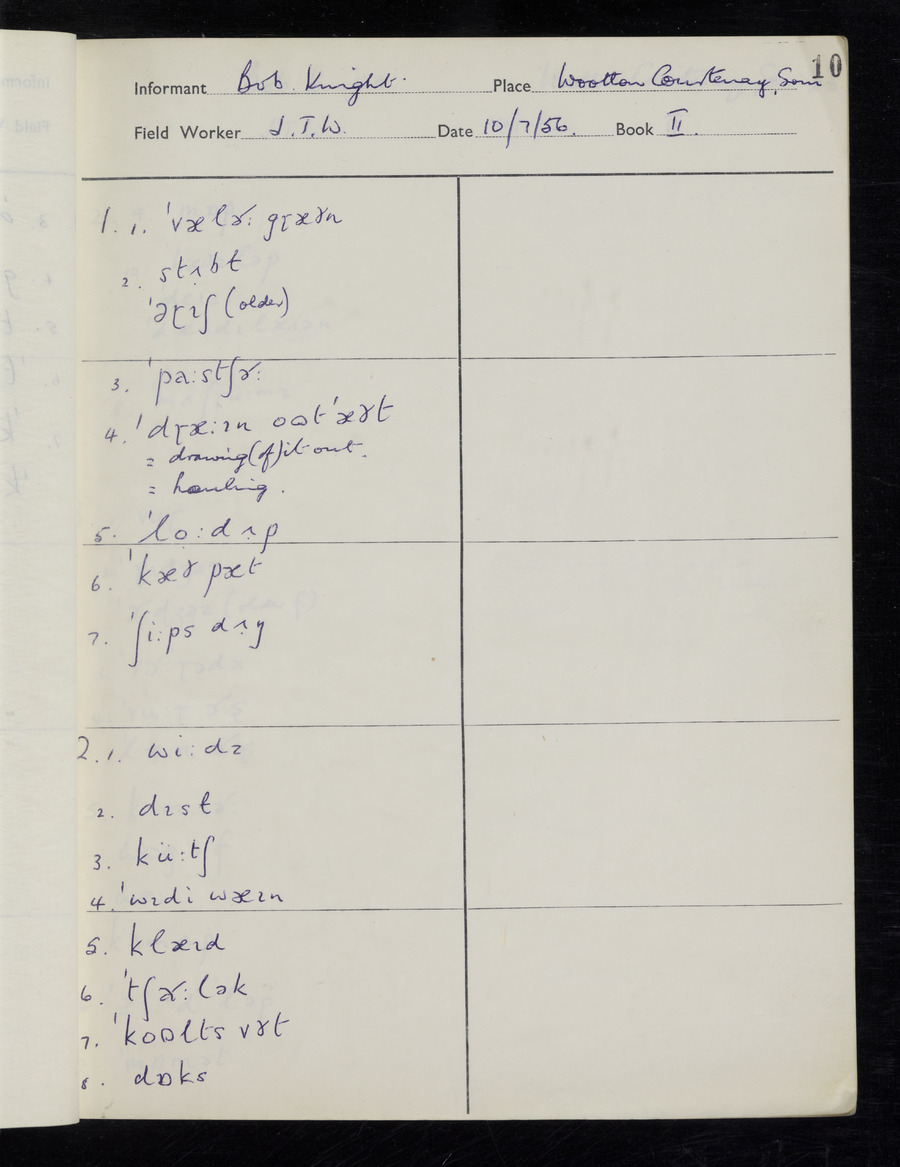 10
Informant Bob Knight. Place Wootton Courtenay, Som
Field Worker J.T.W. Date 10/7/56. Book II.
1. 1. ˈvælɚ: gɽæɤn
2. stʌbt
ˈəɽɪʃ (older)
3. ˈpa:stʃɚ:
4. ˈdɽæ:ɪn ɷt ˈæɤt
= drawing (of) it out.
= hauling.
5. ˈlo:d ʌp
6. ˈkæɤ pæt
7. ˈʃi:ps dʌŋ
2. 1. wi:dz
2. dɪst
3. kü:tʃ
4. ˈwɪdi wæɪn
5. klæɪd
6. ˈtʃɚ:lək
7. ˈkoɷlts vɤt
8. dɒks